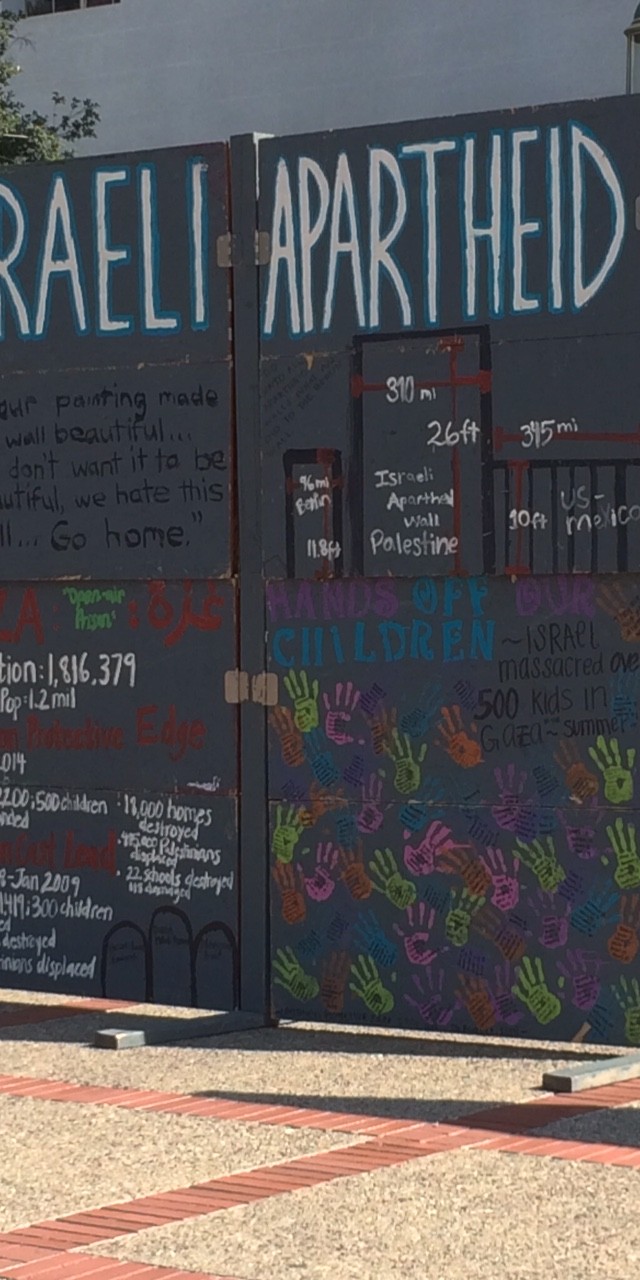 RAELI APARTHEID
our painting made
wall beautiful...
don't want it to be
autiful, we hate this
ll... Go home."
310 mi
26ft
345mi
96mi
Berlin
11.8ft
Israeli
Apartheid
Wall
Palestine
10ft
US-
mexico
ZA: "Open-air
Prison" : غزة
tion: 1,816,379
Pop: 1.2 mil
on Protective Edge
014
2,200; 500 children
nded
18,000 homes
destroyed
Palestinians
displaced
22 schools destroyed
damaged
n Cast Lead
8-Jan 2009
1,419; 300 children
ed
destroyed
tinians displaced
HANDS OFF OUR
CHILDREN
~ISRAEL
massacred over
500 kids in
Gaza~ summer